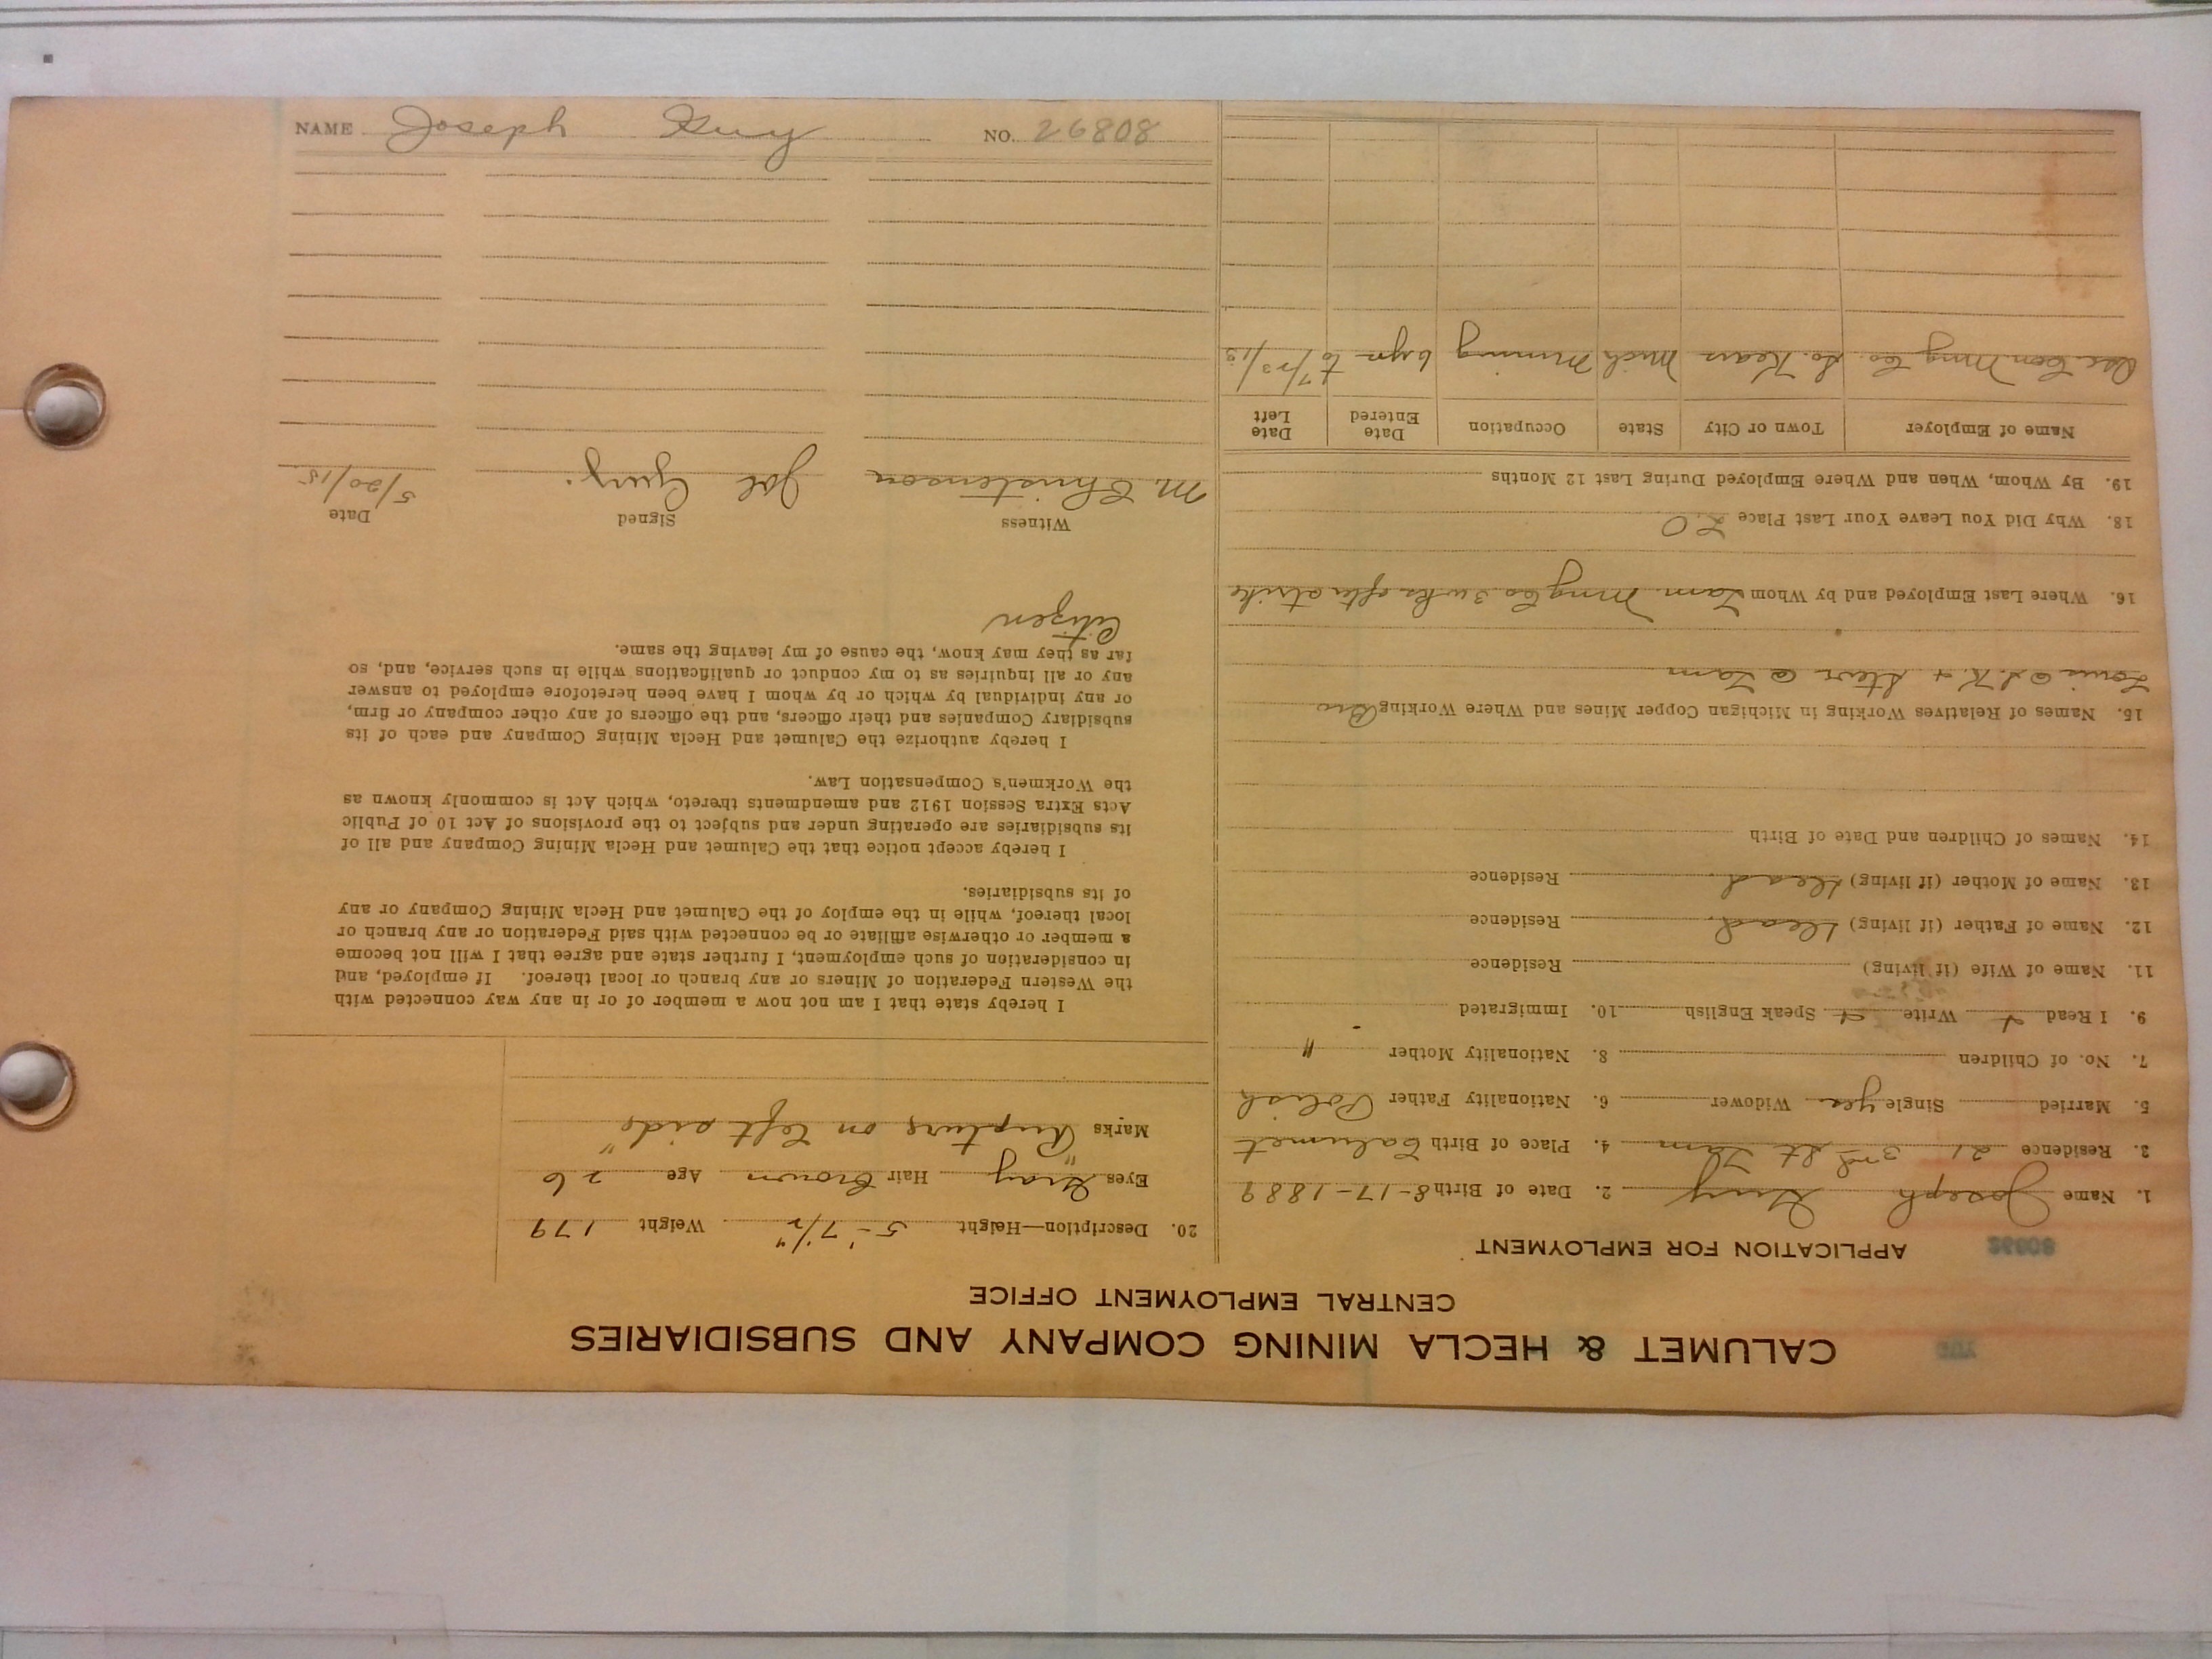 CALUMET & HECLA MINING COMPANY AND SUBSIDIARIES
CENTRAL EMPLOYMENT OFFICE
APPLICATION FOR EMPLOYMENT
1. Name Joseph 2. Date of Birth 8-17-1889
3. Residence 21 3rd St Tam 4. Place of Birth Calumet
5. Married Single yes Widower 6. Nationality Father Polish
7. No. of Children 8. Nationality Mother "
9. I Read Write Speak English 10. Immigrated
11. Name of Wife (if living) Residence
12. Name of Father (if living) Dead Residence
13. Name of Mother (if living) Dead Residence
14. Names of Children and Date of Birth
15. Names of Relatives Working in Michigan Copper Mines and Where Working Bro
@ S.K. + Steve @ Tam
16. Where Last Employed and by Whom Tam Mng Co. 3 wks after strike
18. Why Did You Leave Your Last Place L.O
19. By Whom, When and Where Employed During Last 12 Months
Name of Employer Town or City State Occupation Date Entered Date Left
Osc. Con Mng Co. So. Kears Mich Mining 6 yrs to 7/23/13
20. Description—Height 5-'7 1/2" Weight 179
Eyes Gray Hair Brown Age 26
Marks "Rupture on left side"
I hereby state that I am not now a member of or in any way connected with
the Western Federation of Miners or any branch or local thereof. If employed, and
in consideration of such employment, I further state and agree that I will not become
a member or otherwise affiliate or be connected with said Federation or any branch or
local thereof, while in the employ of the Calumet and Hecla Mining Company or any
of its subsidiaries.
I hereby accept notice that the Calumet and Hecla Mining Company and all of
its subsidiaries are operating under and subject to the provisions of Act 10 of Public
Acts Extra Session 1912 and amendments thereto, which Act is commonly known as
the Workmen's Compensation Law.
I hereby authorize the Calumet and Hecla Mining Company and each of its
subsidiary Companies and their officers, and the officers of any other company or firm,
or any individual by which or by whom I have been heretofore employed to answer
any or all inquiries as to my conduct or qualifications while in such service, and, so
far as they may know, the cause of my leaving the same.
Citizen
Witness Signed Date
M. Christenson Joe 5/20/15
NAME Joseph NO. 26808